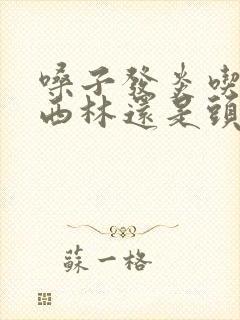 嗓子發炎喫
西林還是頭
蘇一格